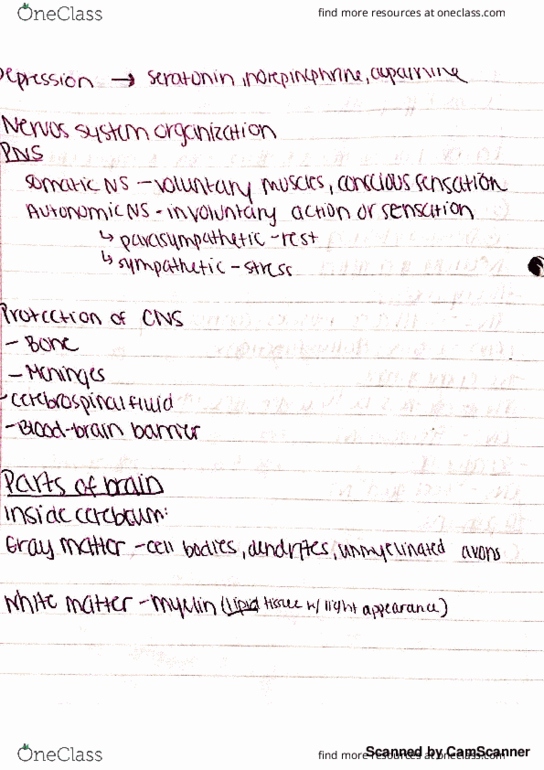 OneClass find more resources at oneclass.com
Depression → seratonin, norepinephrine, dopamine
Nervos system organization
PNS
Somatic NS - voluntary muscles, conscious sensation
Autonomic NS - involuntary action or sensation
↳ parasympathetic - rest
↳ sympathetic - stress
Protection of CNS
- Bone
- Meninges
- cerebrospinal fluid
- Blood-brain barrier
Parts of brain
Inside cerebrum:
Gray matter - cell bodies, dendrites, unmyelinated axons
White matter - myelin (lipid tissue w/ light appearance)
OneClass find more resources at oneclass.com
Scanned by CamScanner